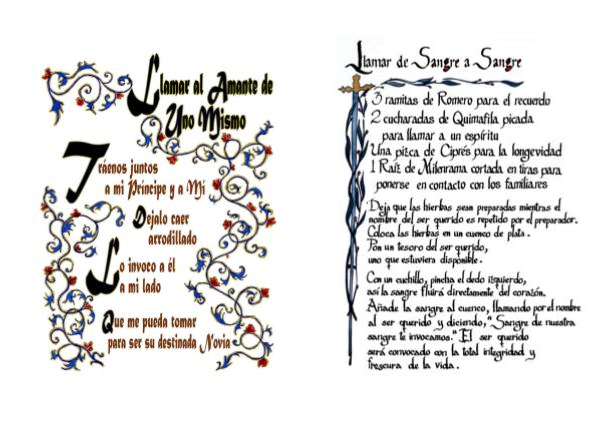 Llamar al Amante de
Uno Mismo
Tráenos juntos
a mi Príncipe y a Mí
Dejalo caer
arrodillado
Lo invoco a él
a mi lado
Que me pueda tomar
para ser su destinada Novia
Llamar de Sangre a Sangre
3 ramitas de Romero para el recuerdo
2 cucharadas de Quimafila picada
para llamar a un espíritu
Una pizca de Ciprés para la longevidad
1 Raíz de Milenrama cortada en tiras para
ponerse en contacto con los familiares
Deja que las hierbas sean preparadas mientras el
nombre del ser querido es repetido por el preparador.
Coloca las hierbas en un cuenco de plata.
Pon un tesoro del ser querido,
uno que estuviera disponible.
Con un cuchillo, pincha el dedo izquierdo,
así la sangre fluirá directamente del corazón.
Añade la sangre al cuenco, llamando por el nombre
al ser querido y diciendo, "Sangre de nuestra
sangre te invocamos." El ser querido
será convocado con la total integridad y
frescura de la vida.